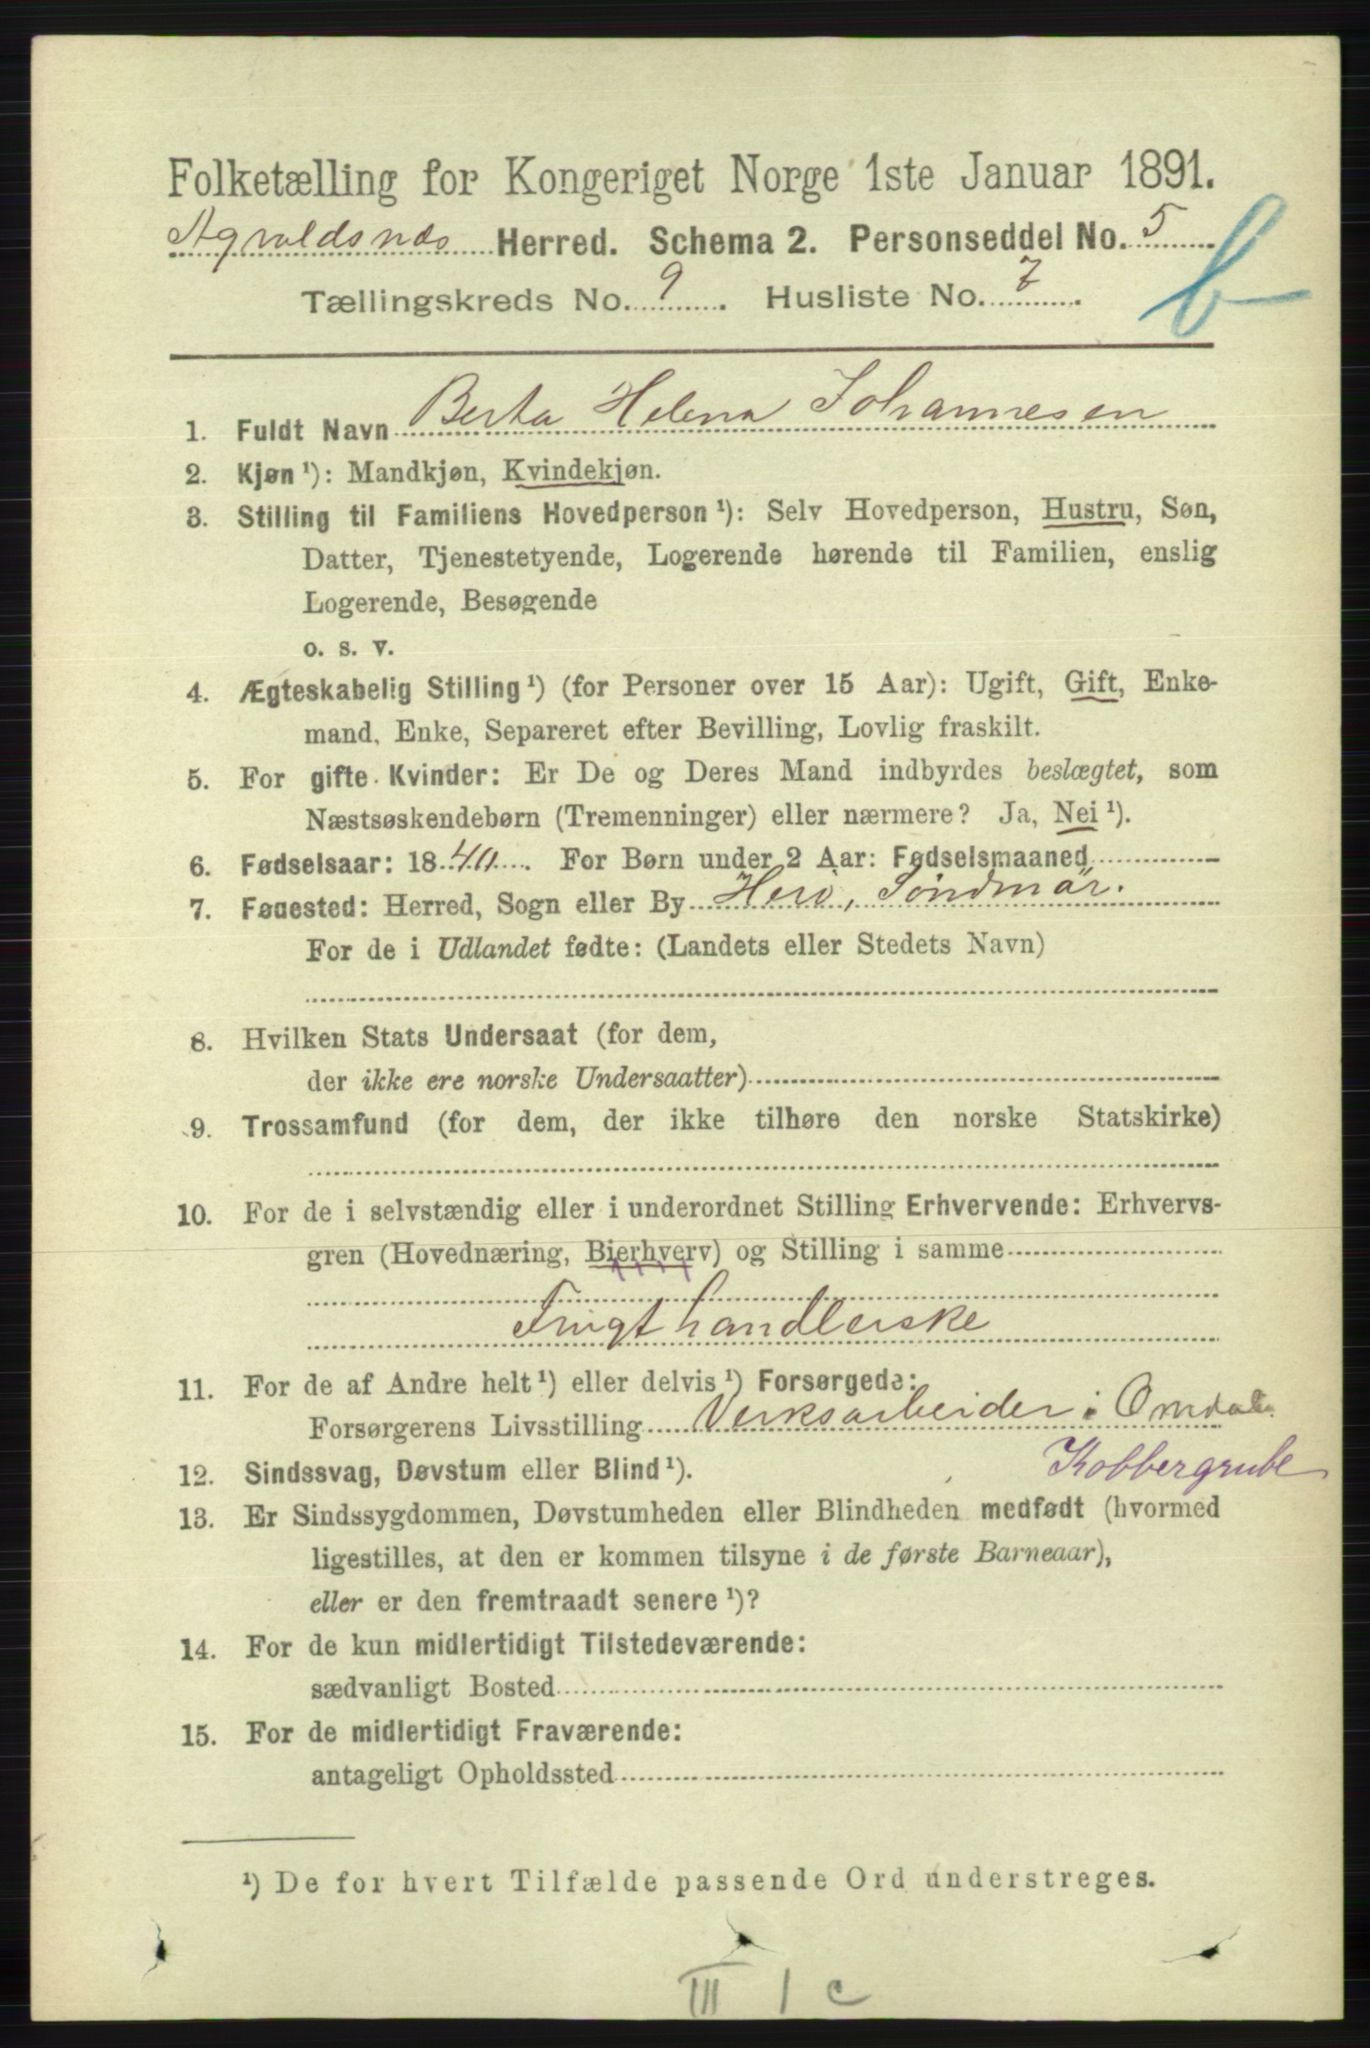 Folketælling for Kongeriget Norge 1ste Januar 1891.
Agvaldsnæs Herred. Schema 2. Personseddel No. 5
b
Tællingskreds No. 9. Husliste No. 7.
1. Fuldt Navn Berta Helena Johannesen
2. Kjøn ¹): Mandkjøn, Kvindekjøn.
3. Stilling til Familiens Hovedperson ¹): Selv Hovedperson, Hustru, Søn,
Datter, Tjenestetyende, Logerende hørende til Familien, enslig
Logerende, Besøgende
o. s. v.
4. Ægteskabelig Stilling ¹) (for Personer over 15 Aar): Ugift, Gift, Enke-
mand, Enke, Separeret efter Bevilling, Lovlig fraskilt.
5. For gifte Kvinder: Er De og Deres Mand indbyrdes beslægtet, som
Næstsøskendebørn (Tremenninger) eller nærmere? Ja, Nei ¹).
6. Fødselsaar: 1840. For Børn under 2 Aar: Fødselsmaaned
7. Fødested: Herred, Sogn eller By Herö, Söndmör.
For de i Udlandet fødte: (Landets eller Stedets Navn)
8. Hvilken Stats Undersaat (for dem,
der ikke ere norske Undersaatter)
9. Trossamfund (for dem, der ikke tilhøre den norske Statskirke)
10. For de i selvstændig eller i underordnet Stilling Erhvervende: Erhvervs-
gren (Hovednæring, Bierhverv) og Stilling i samme
Frugthandlerske
11. For de af Andre helt ¹) eller delvis ¹) Forsørgede:
Forsørgerens Livsstilling Verksarbeider i Omdals
Kobbergrube
12. Sindssvag, Døvstum eller Blind ¹).
13. Er Sindssygdommen, Døvstumheden eller Blindheden medfødt (hvormed
ligestilles, at den er kommen tilsyne i de første Barneaar),
eller er den fremtraadt senere ¹)?
14. For de kun midlertidigt Tilstedeværende:
sædvanligt Bosted
15. For de midlertidigt Fraværende:
antageligt Opholdssted
¹) De for hvert Tilfælde passende Ord understreges.
III 1 c